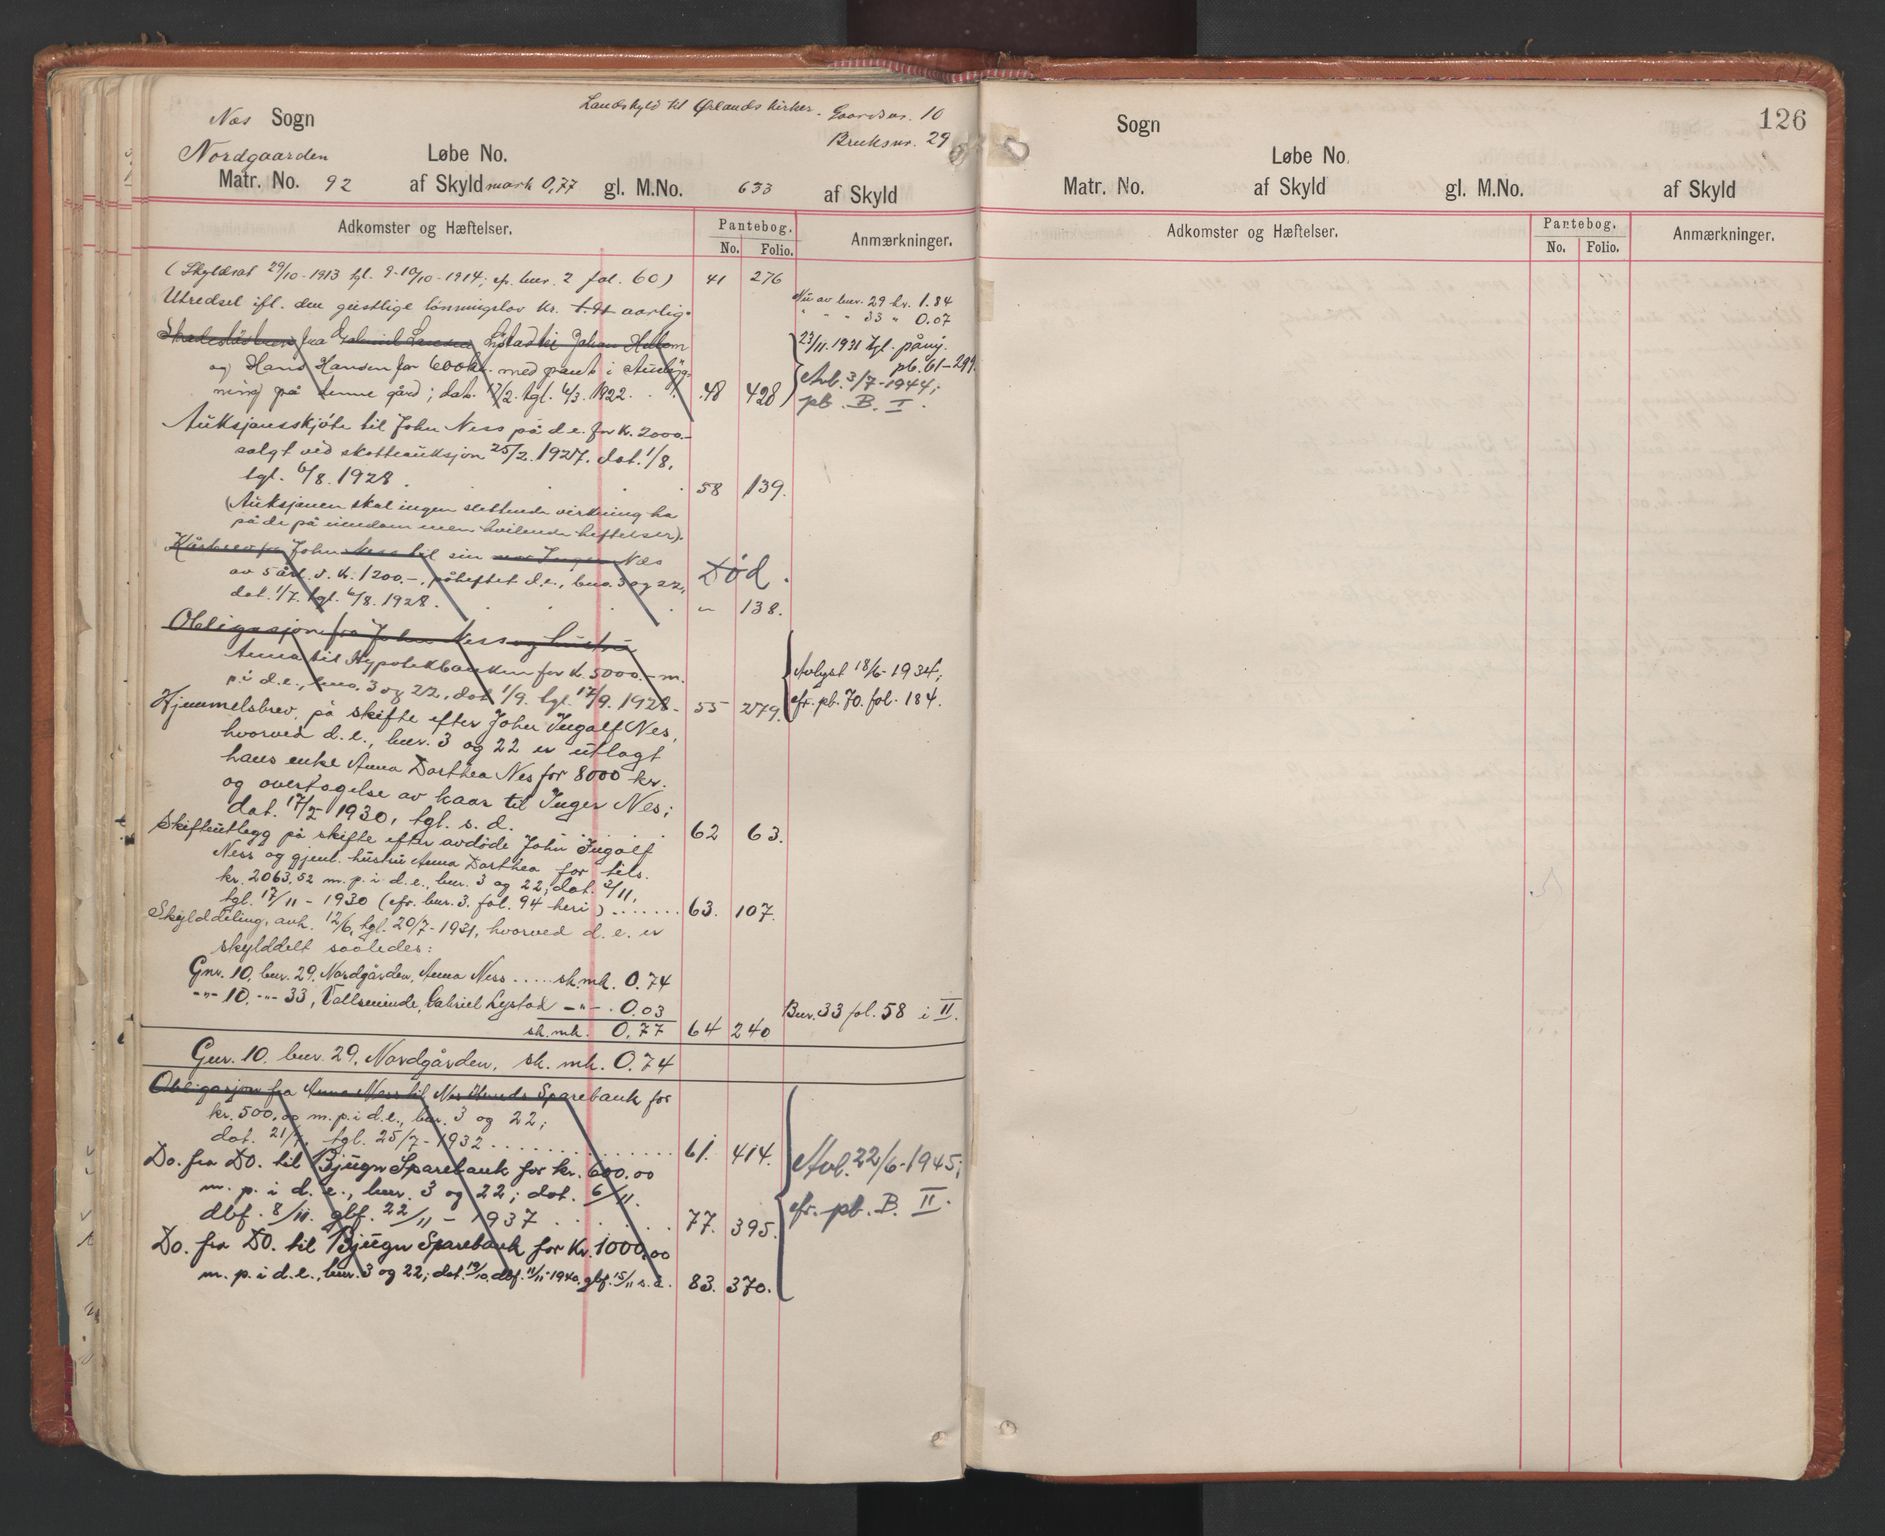 Landskyld til Ørlands kirker. Gaardsnr. 10
Bruksnr. 29
Næs Sogn
Nordgaarden Løbe No.
Matr. No. 92 af Skyld mark 0,77 gl. M.No. 633 af Skyld
Adkomster og Hæftelser. Pantebog. No. Folio. Anmærkninger.
(Skyldsat 29/10-1913 tgl. 9-10/10-1914; cf. bnr. 2 fol. 60) 41 276
Utredsel ifl. den geistlige lønningslov kr. aarlig. Nu av bnr. 29 kr. 1.84
" " " 33 " 0.07
Skadesløsbrev fra Gabriel Larsen Lystad til Johan
og Hans Hansen for 600 kr. med pant i
på denne gård; dat. 17/2. tgl. 6/3. 1922. 48 428
23/11.1931 tgl. påny.
pb. 61-299
Avl. 3/7-1944;
pb. B. I.
Auksjonsskjøte til John Ness på d.e. for k. 2000.-
solgt ved skatteauksjon 25/2. 1927. dat. 1/8,
tgl. 6/8. 1928 58 139.
(Auksjonen skal ingen slettende virkning ha
på de på eiendommen hvilende heftelser).
Kårbrev fra John Ness til sin mor Inger Næs
av 5 årl. v. k. 1200.-, påheftet d.e., bno. 3 og 22, Død.
dat. 1/7. tgl. 6/8. 1928. " 138.
Obligasjon fra John Ness og hustru
Anna til Hypotekbanken for k. 5000.- m.
p. i d.e., bno. 3 og 22, dat. 1/9. tgl. 17/9. 1928 55 279.
Avlyst 18/6-1934;
cfr. pb. 70. fol. 184.
Hjemmelsbrev på skifte efter John Ingolf Nes,
hvorved d.e., bnr. 3 og 22 er utlagt
hans enke Anna Dorthea Nes for 8000 kr.
og overtagelse av kaar til Inger Nes;
dat. 17/5 1930, tgl. s. d. 62 63.
Skifteutlegg på skifte efter avdøde John Ingolf
Ness og gjenl. hustru Anna Dorthea for tils.
kr. 2063,52 m. p. i d.e., bnr. 3 og 22; dat. 3/11,
tgl. 17/11 - 1930 (cfr. bnr. 3. fol. 94 heri) ....... 63. 107.
Skylddeling, avh. 12/6, tgl. 20/7-1931, hvorved d.e. er
skylddelt saaledes:
Gnr. 10, bnr. 29, Nordgården, Anna Ness ..... sk.mk. 0.74
-"- 10. -"- 33, Gabriel Lystad -"- . 0.03 Bnr. 33 fol. 58 i II.
sk. mk. 0.77 64 240
Gnr. 10. bnr. 29, Nordgården, sk. mk. 0.74
Obligasjon fra Anna Ness til Nes Herreds Sparebank for
kr. 500,00 m. p. i d.e., bnr. 3 og 22;
dat. 21/7, tgl. 25/7-1932 ............. 61. 414.
Do. fra Do. til Bjugn Sparebank for kr. 600,00
m. p. i d. e., bnr. 3 og 22; dat. 6/11.
dbf. 8/11. gbf. 22/11 - 1937 ....... 77. 395.
Do. fra Do. til Bjugn Sparebank for Kr. 1000,00
m. p. i d. e., bnr. 3 og 22; dat. 19/10, dbf. 11/11-1940, gbf. 15/11 s. å. 83. 370.
Avl. 22/6-1945;
cfr. pb. B. II.
126
Sogn
Løbe No.
Matr. No. af Skyld gl. M.No. af Skyld
Adkomster og Hæftelser. Pantebog. No. Folio. Anmærkninger.